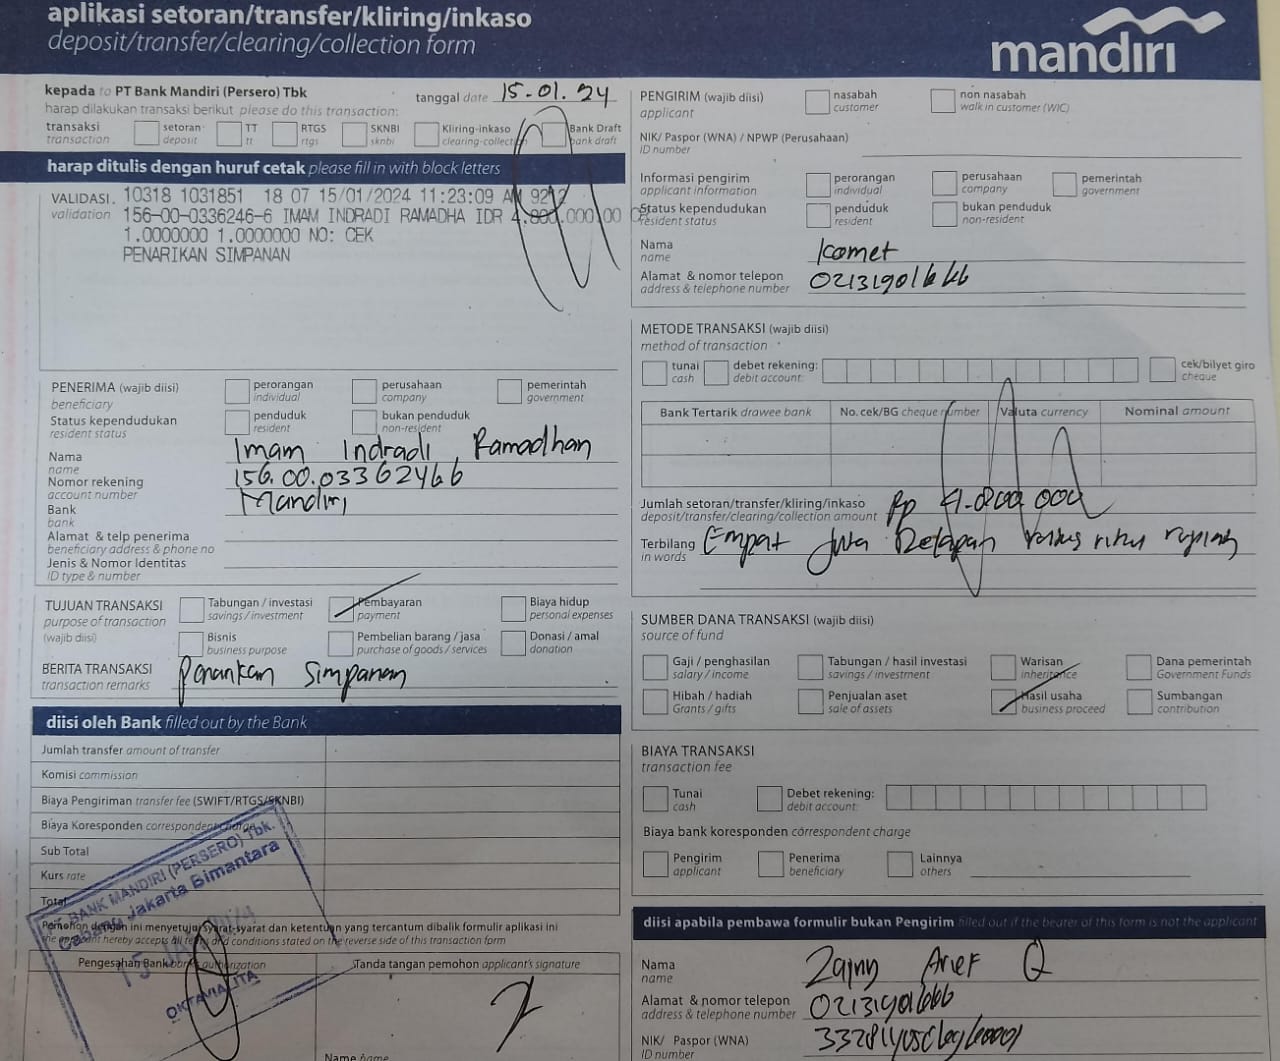 aplikasi setoran/transfer/kliring/inkaso
deposit/transfer/clearing/collection form
mandiri
kepada to PT Bank Mandiri (Persero) Tbk
tanggal date 15.01.24
harap dilakukan transaksi berikut please do this transaction:
transaksi transaction
setoran deposit
TT tt
RTGS rtgs
SKNBI sknbi
Kliring-inkaso clearing-collection
Bank Draft bank draft
harap ditulis dengan huruf cetak please fill in with block letters
VALIDASI validation
10318 1031851 18 07 15/01/2024 11:23:09 AM 9212
156-00-0336246-6 IMAM INDRADI RAMADHA IDR 4.800.000,00
1.0000000 1.0000000 NO: CEK
PENARIKAN SIMPANAN
PENERIMA (wajib diisi)
beneficiary
perorangan individual
perusahaan company
pemerintah government
Status kependudukan
resident status
penduduk resident
bukan penduduk non-resident
Nama name
Imam Indradi Ramadhan
Nomor rekening account number
156.00.03362466
Bank bank
Mandiri
Alamat & telp penerima
beneficiary address & phone no
Jenis & Nomor Identitas
ID type & number
TUJUAN TRANSAKSI
purpose of transaction
(wajib diisi)
Tabungan / investasi savings / investment
Pembayaran payment
Biaya hidup personal expenses
Bisnis business purpose
Pembelian barang / jasa purchase of goods / services
Donasi / amal donation
BERITA TRANSAKSI
transaction remarks
Penarikan Simpanan
diisi oleh Bank filled out by the Bank
Jumlah transfer amount of transfer
Komisi commission
Biaya Pengiriman transfer fee (SWIFT/RTGS/SKNBI)
Biaya Koresponden correspondent charge
Sub Total
Kurs rate
Total
BANK MANDIRI (PERSERO) Tbk.
Cabang Jakarta Bimantara
OKTAVIA LITA
Pemohon dengan ini menyetujui syarat-syarat dan ketentuan yang tercantum dibalik formulir aplikasi ini
the applicant hereby accepts all terms and conditions stated on the reverse side of this transaction form
Pengesahan Bank bank authorization
Tanda tangan pemohon applicant's signature
Nama name
PENGIRIM (wajib diisi)
applicant
nasabah customer
non nasabah walk in customer (WIC)
NIK/ Paspor (WNA) / NPWP (Perusahaan)
ID number
Informasi pengirim
applicant information
perorangan individual
perusahaan company
pemerintah government
Status kependudukan
resident status
penduduk resident
bukan penduduk non-resident
Nama name
Komet
Alamat & nomor telepon
address & telephone number
02131901666
METODE TRANSAKSI (wajib diisi)
method of transaction
tunai cash
debet rekening: debit account:
cek/bilyet giro cheque
Bank Tertarik drawee bank
No. cek/BG cheque number
Valuta currency
Nominal amount
Jumlah setoran/transfer/kliring/inkaso
deposit/transfer/clearing/collection amount
Rp 4.800.000
Terbilang in words
Empat Juta Delapan ratus ribu rupiah
SUMBER DANA TRANSAKSI (wajib diisi)
source of fund
Gaji / penghasilan salary / income
Tabungan / hasil investasi savings / investment
Warisan inheritance
Dana pemerintah Government Funds
Hibah / hadiah Grants / gifts
Penjualan aset sale of assets
Hasil usaha business proceed
Sumbangan contribution
BIAYA TRANSAKSI
transaction fee
Tunai cash
Debet rekening: debit account:
Biaya bank koresponden correspondent charge
Pengirim applicant
Penerima beneficiary
Lainnya others
diisi apabila pembawa formulir bukan Pengirim filled out if the bearer of this form is not the applicant
Nama name
Zainy Arief
Alamat & nomor telepon
address & telephone number
02131901666
NIK/ Paspor (WNA)
ID number